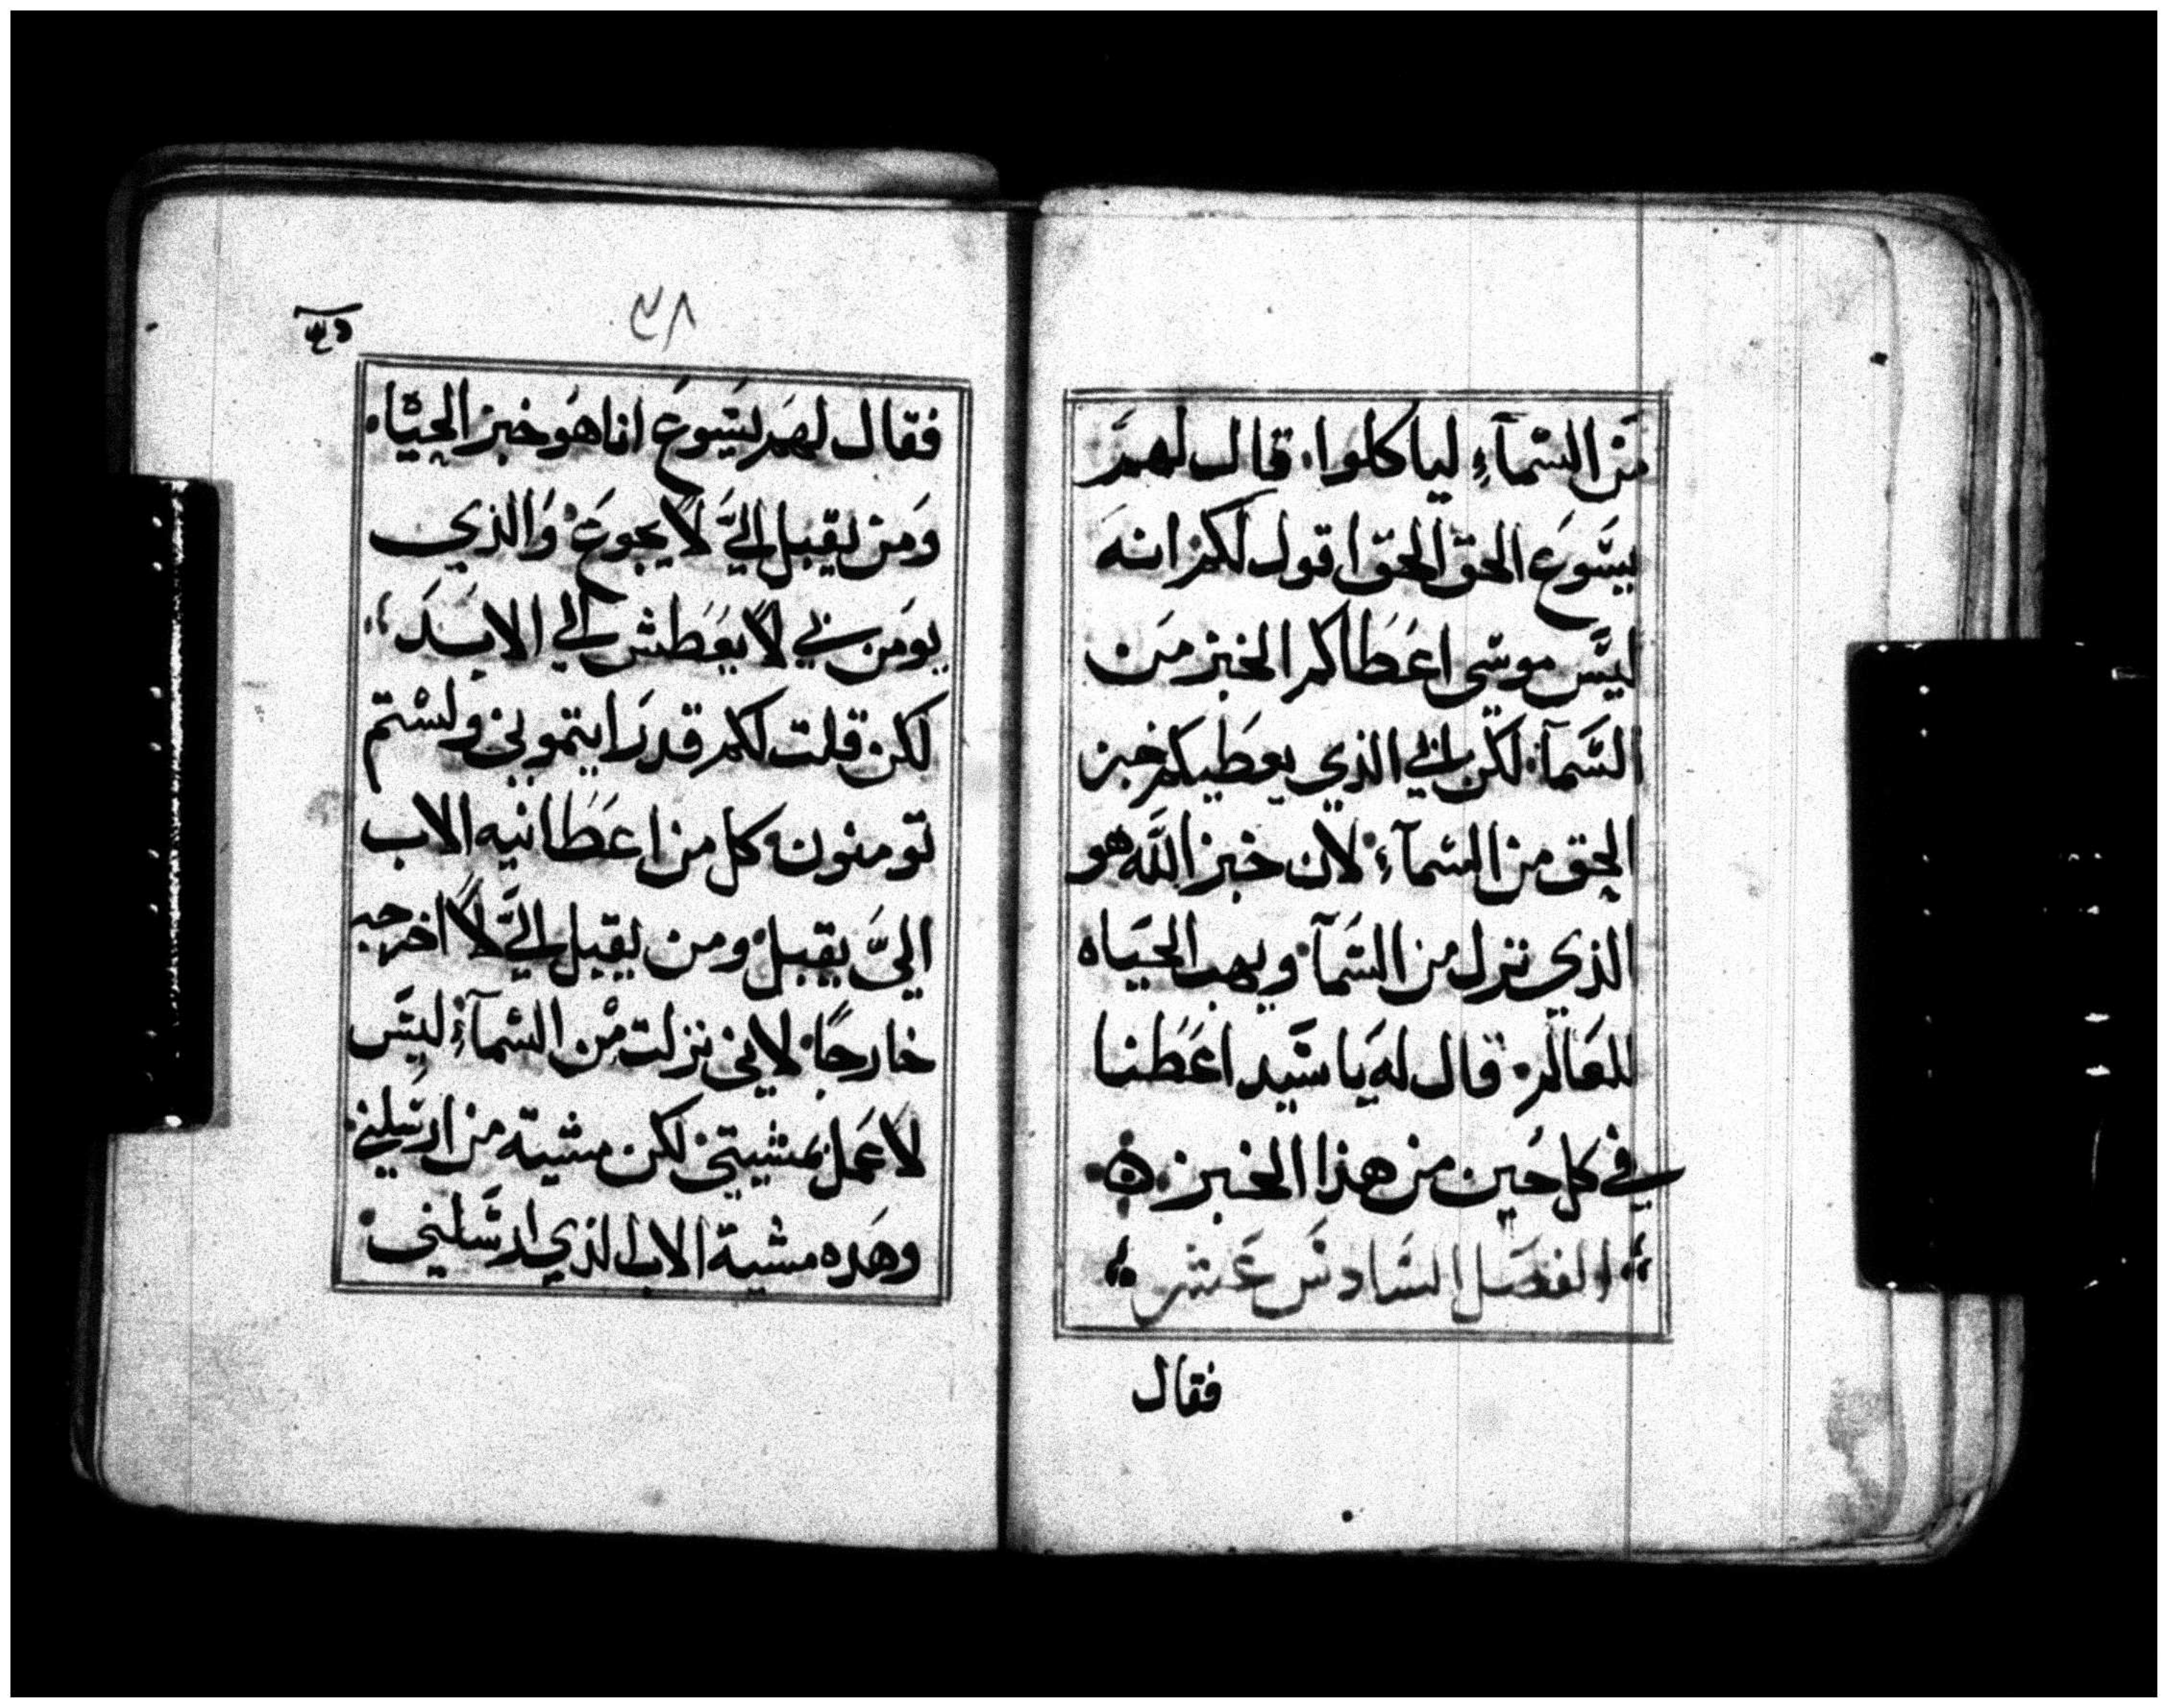 من السمآءِ لياكلوا. قال لهم
يسوع الحق الحق اقول لكم انه
ليس موسى اعطاكم الخبز من
السمآء لكن ابي الذي يعطيكم خبز
الحق من السمآءِ لان خبز الله هو
الذي نزل من السمآ ويهب الحياه
للعالم. قال له يا سيد اعطنا
في كل حين من هذا الخبز.
الفصل السادس عشر
فقال
٣٨
فقال لهم يسوع انا هو خبز الحياه.
ومن يقبل اليَّ لا يجوع والذي
يومن بي لا يعطش الي الابد
لكن قلت لكم قد رايتموني ولستم
تومنون كل من اعطانيه الاب
اليَّ يقبل ومن يقبل اليَّ لا اخرجه
خارجًا. لاني نزلت من السمآءِ ليس
لاعمل بمشيتي لكن مشيته من ارسلني
وهده مشية الاب الذي ارسلني